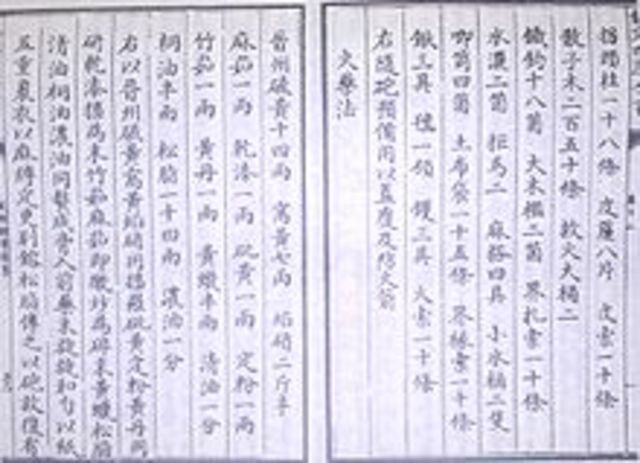 柱一十八條 皮簾八片 皮索一十條
散子木二百五十條 救火大桶二
鐵鉤十八箇 大木檑二箇 界扎索一十條
水濃二箇 拒馬二 麻搭四具 小水桶二隻
唧筒四箇 土布袋一十五條 界椽索一十條
鍬三具 氊一領 钁三具 火索一十條
右隨砲預備用以蓋覆及防火箭
火藥法
晉州硫黃十四兩 窩黃七兩 焰硝二斤半
麻茹一兩 乾漆一兩 砒黃一兩 定粉一兩
竹茹一兩 黃丹一兩 黃蠟半兩 清油一分
桐油半兩 松脂一十四兩 濃油一分
右以晉州硫黃窩黃焰硝同搗羅砒黃定粉黃丹同
研乾漆搗為末竹茹麻茹即微炒為碎末黃蠟松脂
清油桐油濃油同熬成膏入前藥末旋旋和勻以紙
五重裹衣以麻縛定更別鎔松脂傅之以砲放復有